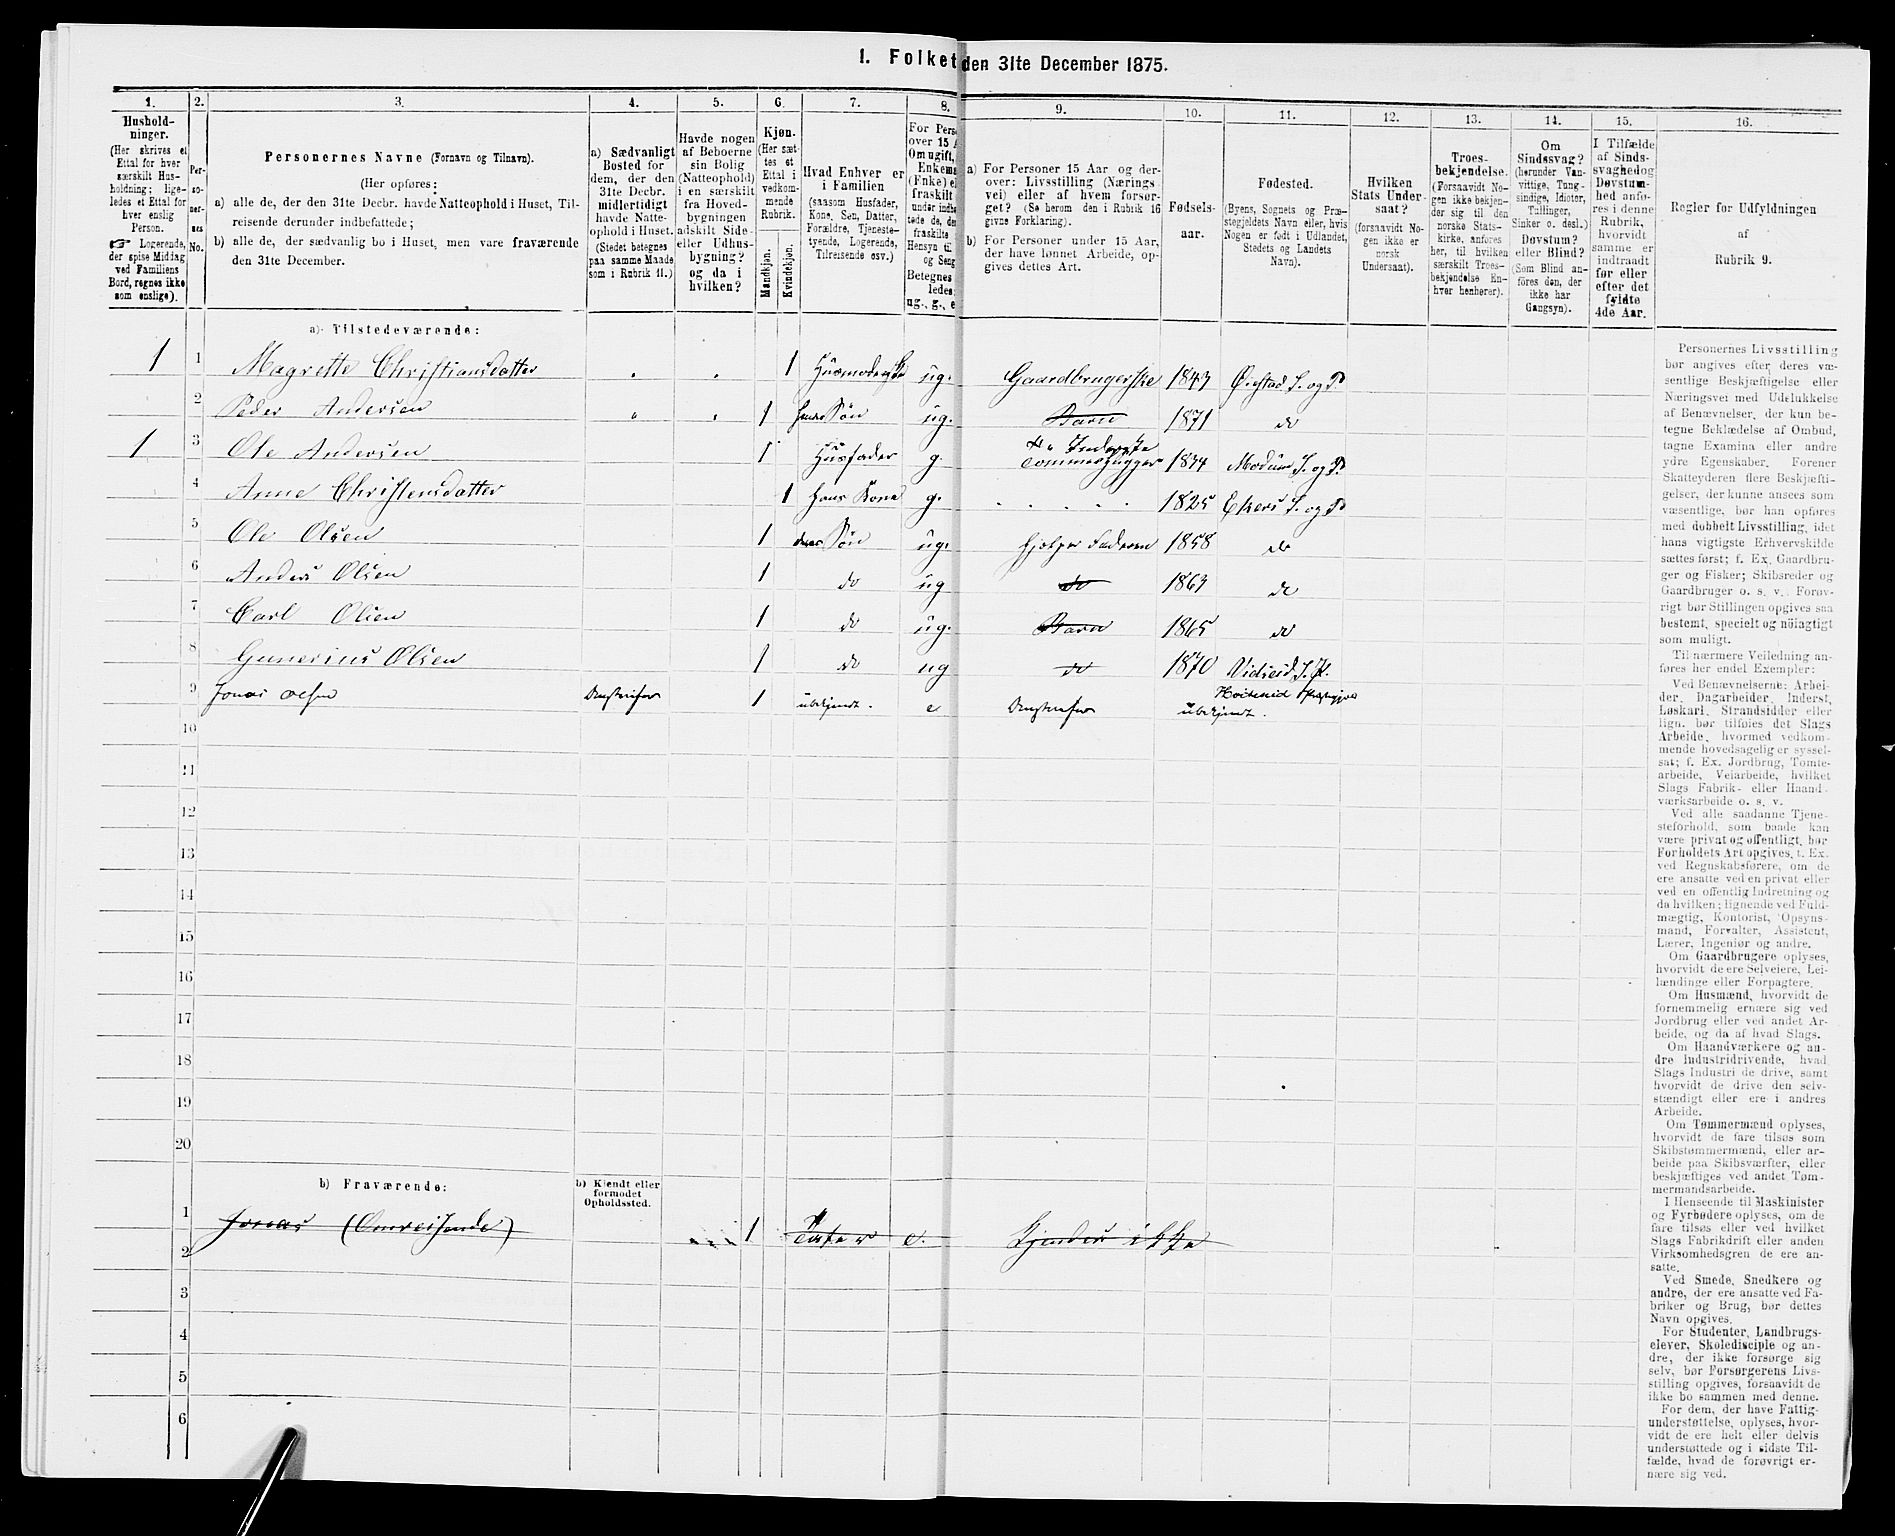 1. Folket den 31te December 1875.
1. 2. 3. 4. 5. 6. 7. 8. 9. 10. 11. 12. 13. 14. 15. 16.
Hushold-
ninger.
(Her skrives et
Ettal for hver
særskilt Hus-
holdning; lige-
ledes et Ettal for
hver enslig
Person.
☞ Logerende,
der spise Middag
ved Familiens
Bord, regnes ikke
som enslige).
Per-
so-
ner-
nes
No.
Personernes Navne (Fornavn og Tilnavn).
(Her opføres:
a) alle de, der den 31te Decbr. havde Natteophold i Huset, Til-
reisende derunder indbefattede;
b) alle de, der sædvanlig bo i Huset, men vare fraværende
den 31te December.
a) Sædvanligt
Bosted for
dem, der den
31te Decbr.
midlertidigt
havde Natte-
ophold i Huset.
(Stedet betegnes
paa samme Maade
som i Rubrik 11.)
Havde nogen
af Beboerne
sin Bolig
(Natteophold)
i en særskilt
fra Hoved-
bygningen
adskilt Side-
eller Udhus-
bygning?
og da i
hvilken?
Kjøn.
(Her sæt-
tes et
Ettal i
vedkom-
mende
Rubrik.
Mandkjøn.
Kvindekjøn.
Hvad Enhver er
i Familien
(saasom Husfader,
Kone, Søn, Datter,
Forældre, Tjeneste-
tyende, Logerende,
Tilreisende osv.)
For Pers
over 15 A
Om ugift,
Enkem
(Enke) el
fraskilt
under indb
tede de, de
fraskilte
Hensyn til
og Seng
Betegnes
ledes:
ug., g., e
a) For Personer 15 Aar og der-
over: Livsstilling (Nærings-
vei) eller af hvem forsør-
get? (Se herom den i Rubrik 16
givne Forklaring).
b) For Personer under 15 Aar,
der have lønnet Arbeide, op-
gives dettes Art.
Fødsels-
aar.
Fødested.
(Byens, Sognets og Præ-
stegjeldets Navn eller, hvis
Nogen er født i Udlandet,
Stedets og Landets
Navn).
Hvilken
Stats Under-
saat?
(forsaavidt No-
gen ikke er
norsk
Undersaat).
Troes-
bekjendelse.
(Forsaavidt No-
gen ikke bekjen-
der sig til den
norske Stats-
kirke, anføres
her, til hvilken
særskilt Troes-
bekjendelse En-
hver henhører).
Om
Sindssvag?
(herunder Van-
vittige, Tung-
sindige, Idioter,
Tullinger,
Sinker o. desl.)
Døvstum?
eller Blind?
(Som Blind an-
føres den, der
ikke har
Gangsyn).
I Tilfælde
af Sinds-
svaghed og
Døvstum-
hed anfø-
res i denne
Rubrik,
hvorvidt
samme er
indtraadt
før eller
efter det
fyldte
4de Aar.
Regler for Udfyldningen
af
Rubrik 9.
a) Tilstedeværende:
1 1 Magrette Christiansdatter 1 ug. Gaardbrugerske 1843 Øiestad S. og P
2 Peder Andersen 1 hans Søn ug. Barn 1871 do
1 3 Ole Andersen 1 Husfader g. Tømmerhugger 1834 Modum S. og P.
4 Anne Christensdatter 1 hans Kone g. 1825 Ekers S. og P
5 Ole Olsen 1 Søn ug. hjelper Faderen 1858 do
6 Anders Olsen 1 do ug do 1863 do
7 Carl Olsen 1 do ug. Barn 1865 do
8 Gunerius Olsen 1 do ug do 1870
9 Jonas olsen 1 ubekjendt. e ubekjendt.
10
11
12
13
14
15
16
17
18
19
20
b) Fraværende:
b) Kjendt eller
formodet
Opholdssted.
1 Jonas (Omreisende) 1 Tater e. Kjendes ikke
2
3
4
5
6
Personernes Livsstilling
bør angives efter deres væ-
sentlige Beskjæftigelse eller
Næringsvei med Udelukkelse
af Benævnelser, der kun be-
tegne Beklædelse af Ombud,
tagne Examina eller andre
ydre Egenskaber. Forener
Skatteyderen flere Beskjæfti-
gelser, der kunne ansees som
væsentlige, bør han opføres
med dobbelt Livsstilling, idet
hans vigtigste Erhvervskilde
sættes først; f. Ex. Gaardbru-
ger og Fisker; Skibsreder og
Gaardbruger o. s. v. Forøv-
rigt bør Stillingen opgives saa
bestemt, specielt og nöiagtigt
som muligt.
Til nærmere Veiledning an-
føres her endel Exempler:
Ved Benævnelserne: Arbei-
der, Dagarbeider, Inderst,
Løskarl, Strandsidder eller
lign. bør tilføies det Slags
Arbeide, hvormed vedkom-
mende hovedsagelig er syssel-
sat; f. Ex. Jordbrug, Tomte-
arbeide, Veiarbeide, hvilket
Slags Fabrik- eller Haand-
værksarbeide o. s. v.
Ved alle saadanne Tjene-
steforhold, som baade kan
være privat og offentligt, bør
Forholdets Art opgives, t. Ex.
ved Regnskabsførere, om de
ere ansatte ved en privat eller
ved en offentlig Indretning og
da hvilken; lignende ved Fuld-
mægtig, Kontorist, Opsyns-
mand, Forvalter, Assistent,
Lærer, Ingeniør og andre.
Om Gaardbrugere oplyses,
hvorvidt de ere Selveiere, Lei-
lændinge eller Forpagtere.
Om Husmænd, hvorvidt de
fornemmelig ernære sig ved
Jordbrug eller ved andet Ar-
beide, og da af hvad Slags.
Om Haandværkere og an-
dre Industridrivende, hvad
Slags Industri de drive, samt
hvorvidt de drive den selv-
stændigt eller ere i andres
Arbeide.
Om Tømmermænd oplyses,
hvorvidt de fare tilsøs som
Skibstømmermænd, eller ar-
beide paa Skibsværfter, eller
beskjæftiges ved andet Tøm-
mermandsarbeide.
I Henseende til Maskinister
og Fyrbødere oplyses, om de
fare tilsøs eller ved hvilket
Slags Fabrikdrift eller anden
Virksomhedsgren de ere an-
satte.
Ved Smede, Snedkere og
andre, der ere ansatte ved Fa-
briker og Brug, bør dettes
Navn opgives.
For Studenter, Landbrugs-
elever, Skoledisciple og an-
dre, der ikke forsørge sig
selv, bør Forsørgerens Livs-
stilling opgives, forsaavidt de
ikke bo sammen med denne.
For dem, der have Fattig-
understøttelse, oplyses, hvor-
vidt de ere helt eller delvis
understøttede og i sidste Til-
fælde, hvad de forøvrigt er-
nære sig ved.